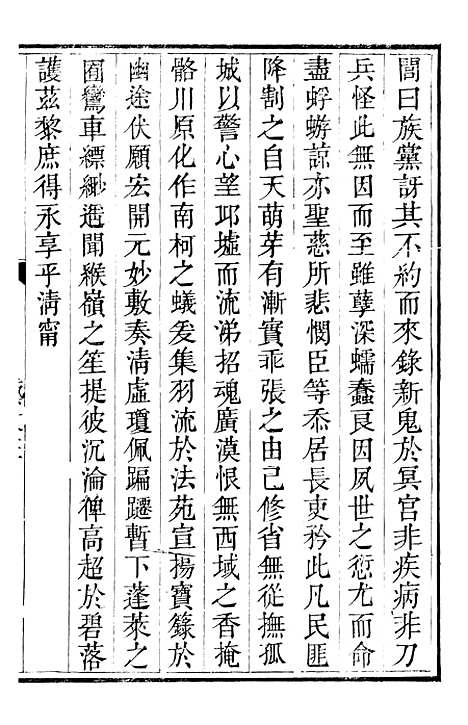 閭曰族黨訝其不約而來錄新鬼於冥宮非疾病非刀
兵怪此無因而至雖孽深蠕蠢良因夙世之愆尤而命
盡蜉蝣諒亦聖慈所悲憫臣等忝居長吏矜此凡民匪
降割之自天萌芽有漸實乖張之由己修省無從撫孤
城以警心望邱墟而流涕招魂廣漠恨無西域之香掩
骼川原化作南柯之蟻爰集羽流於法苑宣揚寶籙於
幽途伏願宏開元妙敷奏清虛瓊佩蹁躚暫下蓬萊之
圃鸞車縹緲遙聞緱嶺之笙提彼沉淪俾高超於碧落
護茲黎庶得永享乎清甯